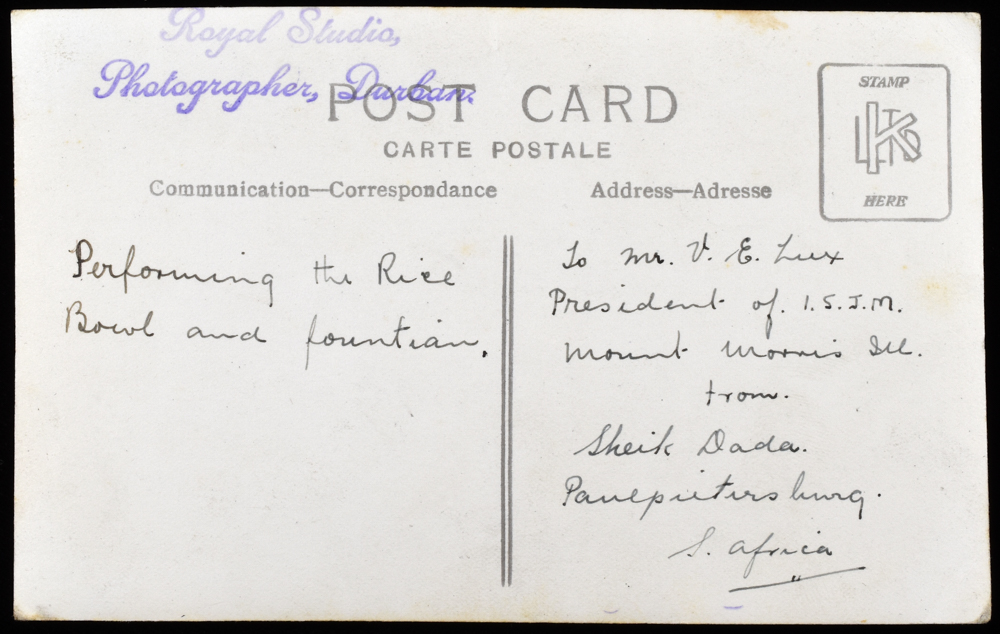 Royal Studio,
Photographer, Durban.
POST CARD
CARTE POSTALE
Communication—Correspondance
Address—Adresse
STAMP
KLTD
HERE
Performing the Rice
Bowl and fountian.
To Mr. V. E. Lux
President of. I.S.J.M.
Mount Morris Ill.
from.
Sheik Dada.
Paulpietersburg.
S. Africa